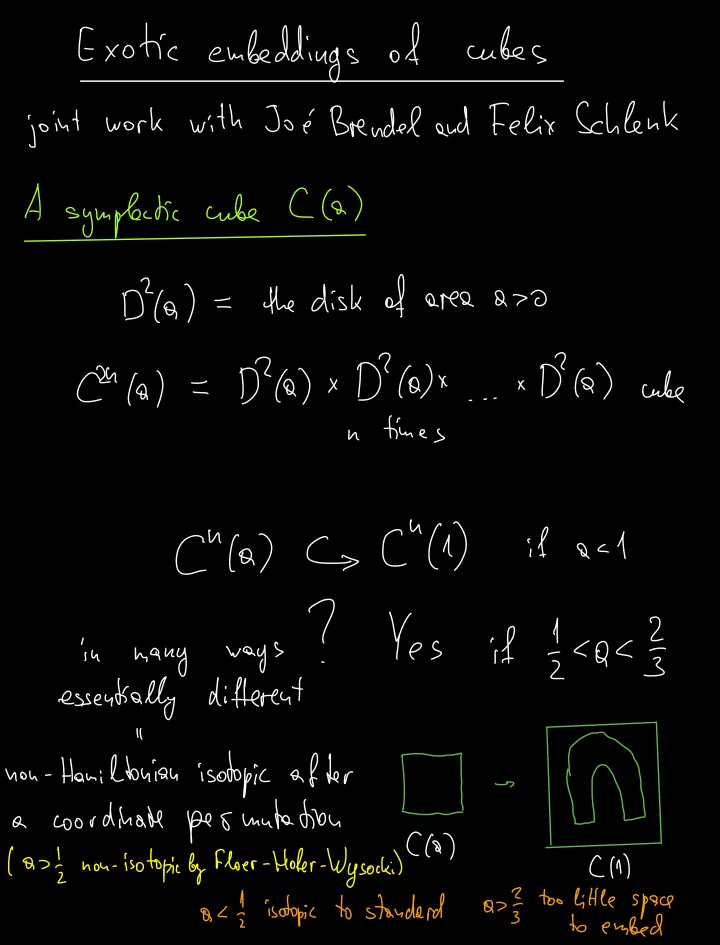 Exotic embeddings of cubes
joint work with Joé Brendel and Felix Schlenk
A symplectic cube C(a)
D²(a) = the disk of area a>0
C²ⁿ(a) = D²(a) × D²(a) × ... × D²(a) cube
n times
Cⁿ(a) ↪ Cⁿ(1) if a<1
in many ways ? Yes if 1/2 < a < 2/3
essentially different
"
non-Hamiltonian isotopic after
a coordinate permutation
(a>1/2 non-isotopic by Floer-Hofer-Wysocki)
C(a) → C(1)
a<1/2 isotopic to standard
a>2/3 too little space
to embed